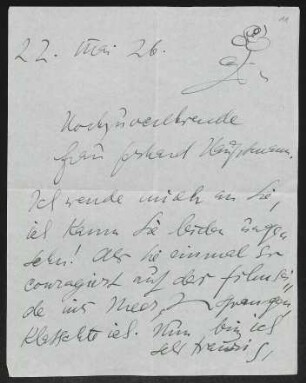 22. Mai 26.
Hochzuverehrende
Frau Gerhart Hauptmann.
Ich wende mich an Sie,
ich kann Sie beiden
sehn! Als Sie einmal so
couragiert auf der Filmsei„
de ins Meer sprangen,
klatschte ich. Nun bin ich
sehr traurig,